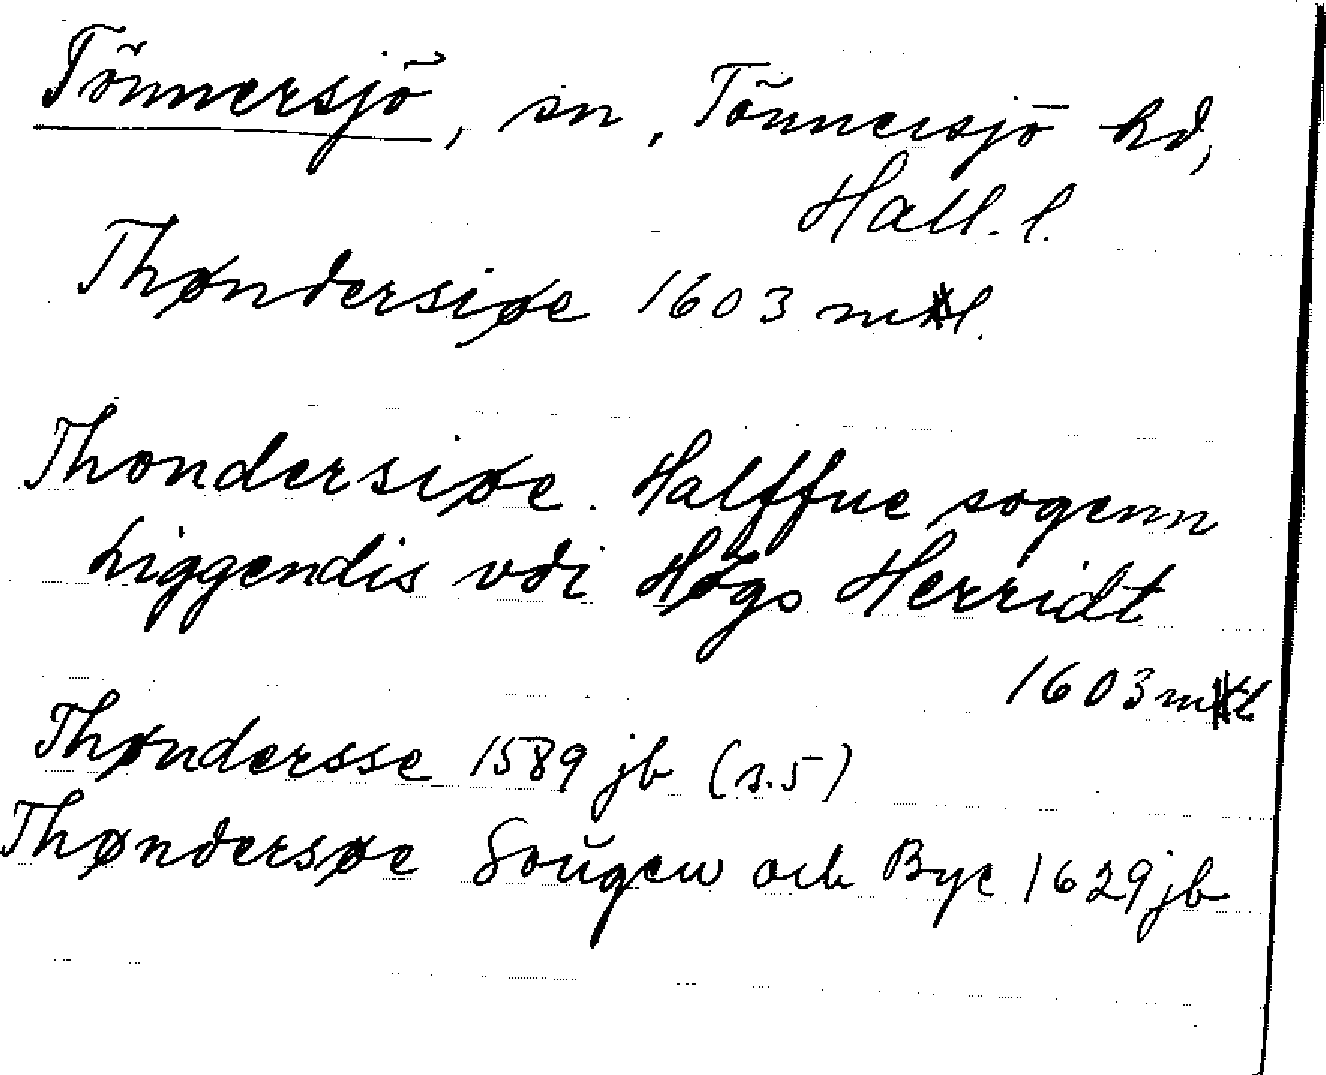 Tönnersjö, sn, Tönnersjö hd,
Hall. l.
Thøndersiøe 1603 mtl.
Thondersiøe. Halffue sogenn
Liggendis vdi Høgs Herridt
1603 mtl
Thøndersse 1589 jb (s.5)
Thøndersøe Sougen och Bye 1629 jb